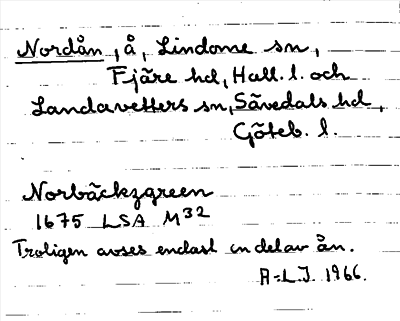 Nordån, å, Lindome sn,
Fjäre hd, Hall. l. och
Landavetters sn, Sävedals hd,
Göteb. l.
Norbäckzgreen
1675 LSA M32
Troligen avses endast en del av ån.
A-LJ. 1966.